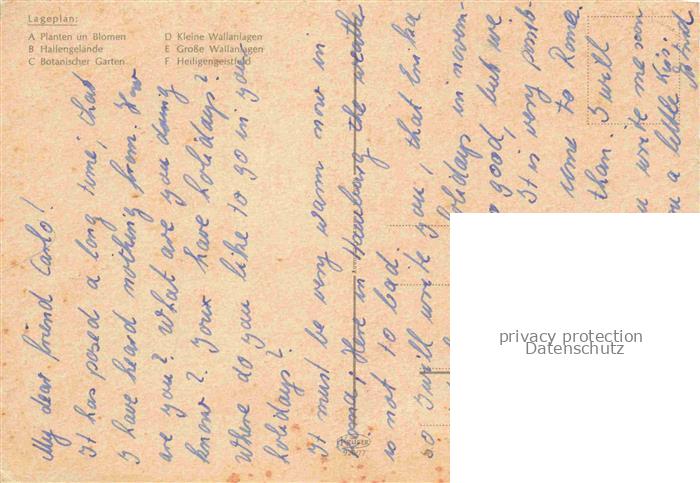 Lageplan:
A Planten un Blomen
B Hallengelände
C Botanischer Garten
D Kleine Wallanlagen
E Große Wallanlagen
F Heiligengeistfeld
My dear friend Carlo!
It has posed a long time, that
I have heard nothing from. How
are you? What are you doing
know? Your have holidays?
Where do you like to go in your
holidays?
It must be very warm now in
Roma. Here in Hamburg the weather
is not to bad.
so I will write you, that
holidays in novem-
good, but we
It is very possib-
come to Roma.
than. I will
write me soon
a little Kiss.
KRÜGER
privacy protection
Datenschutz